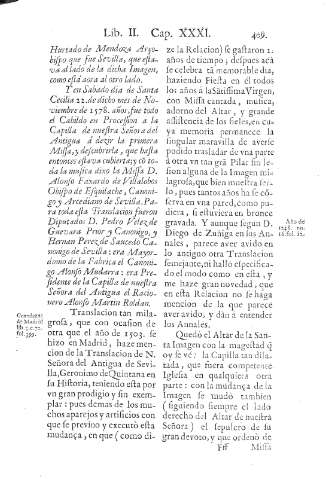 Lib. II. Cap. XXXI. 409.
Hurtado de Mendoza Arço-
bispo que fue Sevilla, que esta-
va al lado de la dicha Imagen,
como està aora al otro lado.
Y en Sabado dia de Santa
Cecilia 22. de dicho mes de No-
viembre de 1578. años, fue todo
el Cabildo en Procession a la
Capilla de nuestra Señora del
Antigua à dezir la primera
Missa, y descubrirla, que hasta
entonces estava cubierta; y cõ to-
da la musica dixo la Missa D.
Alonso Faxardo de Villalobos
Obispo de Esquilache, Canoni-
go y Arcediano de Sevilla. Pa-
ra toda esta Translacion fueron
Diputados D. Pedro Velez de
Guevara Prior y Canonigo, y
Hernan Perez de Saucedo Ca-
nonigo de Sevilla: era Mayor-
domo de la Fabrica el Canoni-
go Alonso Mudarra: era Pre-
sidente de la Capilla de nuestra
Señora del Antigua al Racio-
nero Alonso Martin Roldan.
Translacion tan mila-
grosa, que con ocasion de
otra que el año de 1503. se
hizo en Madrid, haze men-
cion de la Translacion de N.
Señora del Antigua de Sevi-
lla, Geronimo de Quintana en
su Historia, teniendo esta por
vn gran prodigio y sin exem-
plar: pues demas de los mu-
chos aparejos y artificios con
que se previno y executò esta
mudança, en que (como di-
de Madrid
ze la Relacion) se gastaron 2.
años de tiempo; despues acà
se celebra tã memorable dia,
haziendo Fiesta en èl todos
los años à la Sãtissima Virgen,
con Missa cantada, musica,
adorno del Altar, y grande
assistencia de los fieles, en cu-
ya memoria permanece la
singular maravilla de averse
podido trasladar de vna parte
à otra vn tan grã Pilar sin le-
sion alguna de la Imagen mi-
lagrosa, que bien muestra ser-
lo, pues tantos años ha se cõ-
serva en vna pared, como pu-
diera, si estuviera en bronce
gravada. Y aunque segun D.
Diego de Zuñiga en los An-
nales, parece aver avido en
lo antiguo otra Translacion
semejante, ni hallo especifica-
do el modo como en esta, y
me haze gran novedad, que
en esta Relacion no se haga
mencion de la que parece
aver avido, y dàn à entender
los Annales.
Quedò el Altar de la San-
ta Imagen con la magestad q̃
oy se vè: la Capilla tan dila-
tada, que fuera competente
Iglesia en qualquiera otra
parte: con la mudança de la
Imagen se mudò tambien
(siguiendo siempre el lado
derecho del Altar de nuestra
Señora) el sepulcro de su
gran devoto, y que ordenò de
Año de
Fff Missa